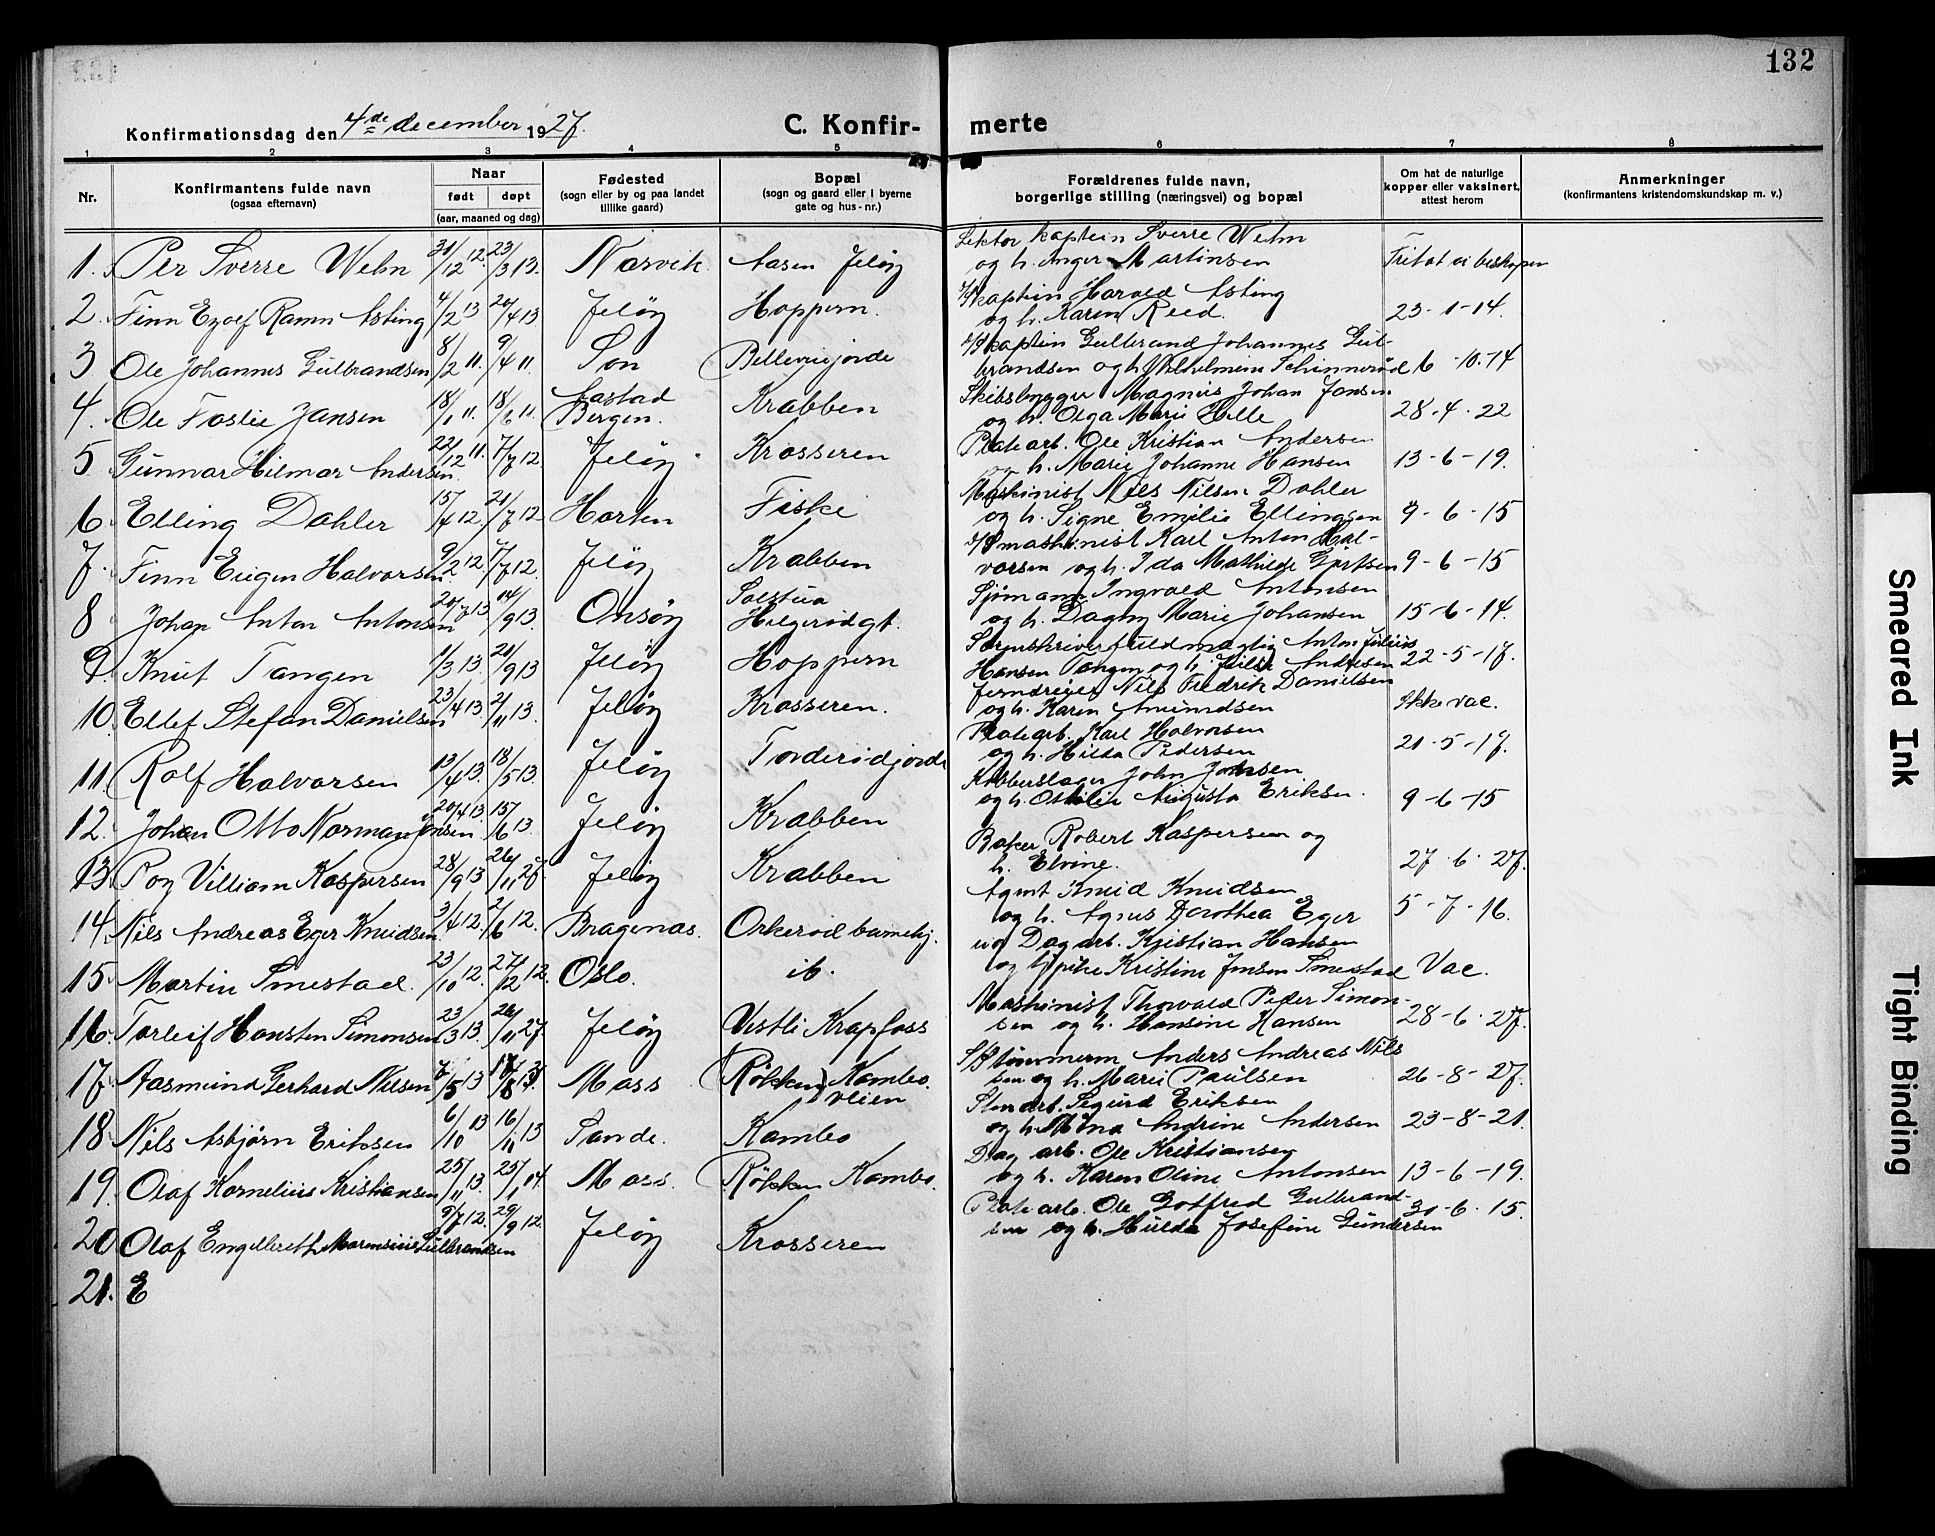 132
Konfirmationsdag den 4de december 1927.
C. Konfir- merte
1 2 3 4 5 6 7 8
Nr.
Konfirmantens fulde navn
(ogsaa efternavn)
Naar
født døpt
(aar, maaned og dag)
Fødested
(sogn eller by og paa landet
tillike gaard)
Bopæl
(sogn og gaard eller i byerne
gate og hus-nr.)
Forældrenes fulde navn,
borgerlige stilling (næringsvei) og bopæl
Om hat de naturlige
kopper eller vaksinert,
attest herom
Anmerkninger
(konfirmantens kristendomskundskap m. v.)
1. Per Sverre Wehn 31/12 12. 23/3 13. Narvik. Aasen Jeløy
Lektor kaptein Sverre Wehn
og h. Inger Martinsen
2. Finn Ramm Asting 4/2 13 20/4 13 Jeløy Hoppern. 23-1-14.
kaptein Harald Asting
og h. Karen Reed.
3 Ole Johannes Gulbrandsen 8/2 11. 9/4 11. Son Bellevuejorde 6-10-14
kaptein Gulbrand Johannes Gul-
brandsen og h. Vilhelmine
4. Ole Faslie Jansen 18/1 11. 18/6 11. Bergen. Krabben 28-4-22
Skibsbygger Magnus Johan Jansen
og h. Olga Marie Hille
5. Gunnar Hilmar Andersen 22/12 11. 7/7 12. Jeløy Krosseren 13-6-19.
Platearb. Ole Kristian Andersen
og h. Marie Johanne Hansen
6 Elling Dahler 15/4 12 21/7 12 Horten Fiske 9-6-15
Maskinist Nils Nilsen Dahler
og h. Signe Emilie Ellingsen
7. Finn Eugen Halvorsen 9/2 12. 7/7 12. Jeløy Krabben 9-6-15
maskinist Karl Anton Hal-
vorsen og h. Ida Mathilde Gjertsen
8 Johan Anton Antonsen 20/7 13 14/9 13. Onsøy Solstua 15-6-14.
Sjømann Ingvald Antonsen
og h. Dagny Marie Johansen
9. Knut Tangen 1/3 13. 21/9 13 Jeløy Hoppern 22-5-17.
Sorenskriverfuldmægtig Anton Julius
Hansen Tangen og h. Andresen
10. Ellef Stefan Danielsen 23/4 13 2/11 13. Jeløy Krosseren. Ikke vac.
Jerndreier Nils Fredrik Danielsen
og h. Karen Amundsen
11. Rolf Halvorsen 13/4 13. 18/5 13. Jeløy Torderødjorde 21-5-17.
Platearb. Karl Halvorsen
og h. Hilda Pedersen
12. Johan Otto Norman Jonsen 20/4 13. 15/6 13. Jeløy Krabben 9-6-15
Kobberslager John Johnsen
og h. Augusta Eriksen.
13. Roy Villiam Kaspersen 28/9 13 Jeløy Krabben 27-6-27.
Baker Robert Kaspersen og
h. Elvine.
14. Nils Andreas Eger Knudsen. 3/4 12. 2/6 12. Bragenæs. Orkerød barnehj. 5-7-16.
Agent Knud Knudsen
og h. Agnes Dorothea Eger
15. Martin Smestad. 23/10 12. 27/12 12. Oslo. ib. Vac.
Dagarb. Kristian Hansen
og Kristine Jensen Smestad
16. Torleif Hansten Simonsen 23/3 13. 26/11 27. Jeløy Vestli Krapfoss 28-6-27.
Maskinist Thorvald Peder Simon-
sen og h. Hansine Hansen
17. Aasmund Gerhard Nilsen Moss Røkken, Kambo. veien 26-8-27.
tømmerm Anders Andreas Nils
sen og h. Marie Paulsen
18. Nils Asbjørn Eriksen 6/10 13 16/11 13 Sande. Kambo 23-8-21.
Stenarb. Sigurd Eriksen
og h. Mina Andrine Andersen
19. Olaf Kornelius Kristiansen 25/11 13. 25/1 14. Moss. Røkken Kambo. 13-6-19.
Dag arb. Ole Kristiansen
og h. Karen Oline Antonsen
20 Olaf Engelbreth Gulbrandsen 9/7 12. 29/9 12. Jeløy Krosseren 30-6-15.
Platearb. Ole Gotfred Gulbrand-
sen og h. Hulda Josefine Gundersen
21. E
Smeared Ink
Tight Binding